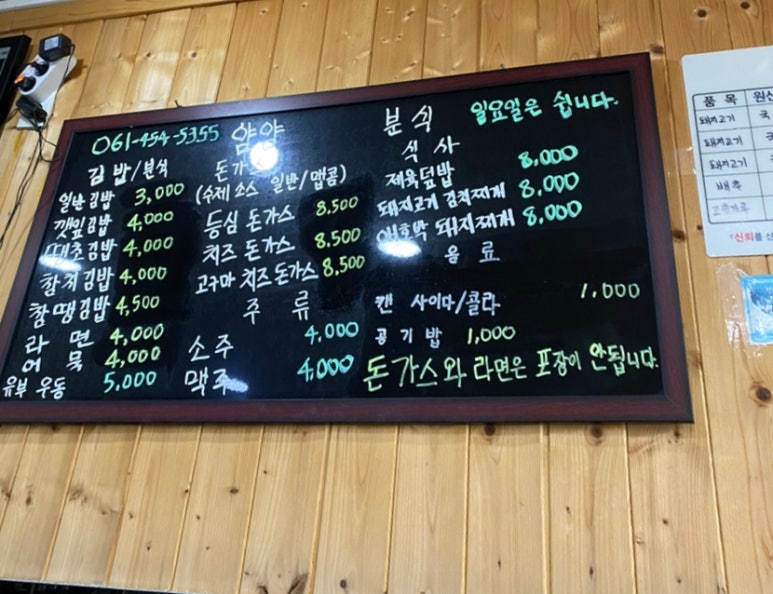 061-454-5355 얌얌 분식 일요일은 쉽니다.
김밥/분식
일반김밥 3,000
깻잎김밥 4,000
땡초김밥 4,000
참치김밥 4,000
참땡김밥 4,500
라면 4,000
어묵 4,000
유부 우동 5,000
돈가스
(수제 소스 일반/맵콤)
등심 돈가스 8,500
치즈 돈가스 8,500
고구마 치즈 돈가스 8,500
주류
소주 4,000
맥주 4,000
식사
제육덮밥 8,000
돼지고기 김치찌개 8,000
애호박 돼지찌개 8,000
음료
캔 사이다/콜라 1,000
공기밥 1,000
돈가스와 라면은 포장이 안됩니다.
품목 원산
돼지고기 국
돼지고기
돼지고기
배추
고춧가루
신뢰를